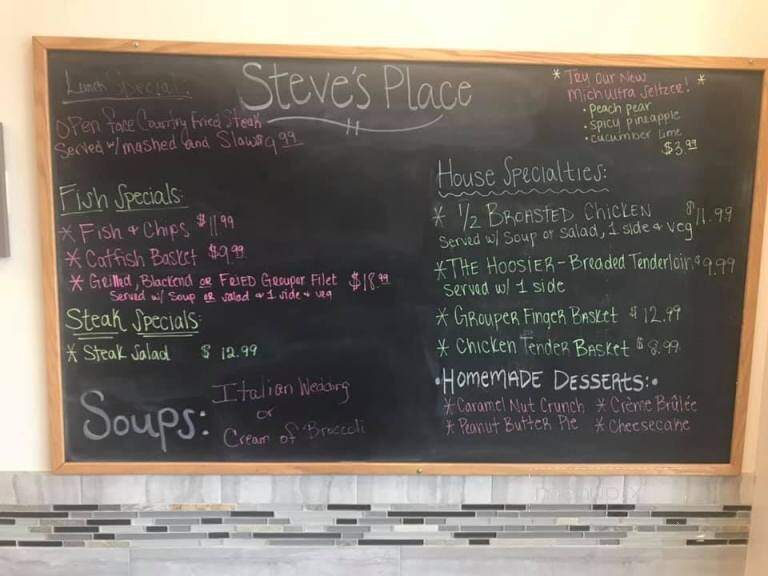 Steve's Place
Lunch Special:
Open face Country Fried Steak
Served w/ mashed and Slaw $9.99
Fish Specials:
* Fish + Chips $11.99
* Catfish Basket $9.99
* Grilled, Blackend or Fried Grouper Filet $18.99
Served w/ Soup or salad + 1 side + veg
Steak Specials:
* Steak Salad $12.99
Soups:
Italian Wedding
or
Cream of Broccoli
* Try our New *
Mich Ultra Seltzer!
• Peach pear
• Spicy pineapple
• cucumber lime
$3.99
House Specialties:
* 1/2 Broasted Chicken $11.99
Served w/ Soup or salad, 1 side + veg
* The Hoosier - Breaded Tenderloin $9.99
served w/ 1 side
* Grouper Finger Basket $12.99
* Chicken Tender Basket $8.99
• Homemade Desserts: •
* Caramel Nut Crunch * Crème Brûlée
* Peanut Butter Pie * Cheesecake